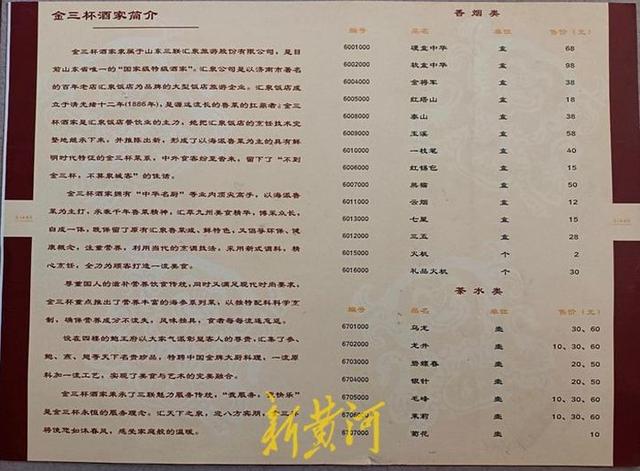 金三杯酒家简介
金三杯酒家隶属于山东三联汇泉旅游股份有限公司，是目
前山东省唯一的“国家级特级酒家”。汇泉公司是以济南市著名
的百年老店汇泉饭店为品牌的大型饭店旅游企业。汇泉饭店成
立于清光绪十二年(1886年)，是源远流长的鲁菜的扛鼎者。金三
杯酒家是汇泉饭店餐饮业的主力，她把汇泉饭店的烹饪技术完
整地继承下来，并推陈出新，形成了以海派鲁菜为主的具有鲜
明时代特征的金三杯菜系，中外食客纷至沓来，留下了“不到
金三杯，不算泉城客”的佳话。
金三杯酒家拥有“中华名厨”等业内顶尖高手，以海派鲁
菜为主打，承载千年鲁菜精神，汇萃九州美食精华，博采众长，
自成一体，既保留了原有汇泉鲁菜咸、鲜特色，又倡导环保、健
康概念，注重营养，利用当代的烹调技法，采用新式调料，精
心烹饪，全力为顾客打造一流美食。
尊重国人的滋补营养饮食传统，同时又满足现代时尚要求，
金三杯重点推出了营养丰富的海参系列菜，以独特配料科学烹
制，确保营养成分不流失，风味独具，食者每每流连忘返。
设在四楼的鲍王府以大家气派彰显客人的尊贵，汇集了参、
鲍、燕、翅等天下名贵珍品，特聘中国金牌大厨料理，一流原
料加一流工艺，实现了美食与艺术的完美融合。
金三杯酒家秉承了三联魅力服务传统，“我服务，
快乐”
是金三杯永恒的服务理念。汇天下之泉，迎八方宾朋，金三杯
将使您如沐春风，感受家庭般的温暖。
香烟类
编号 品名 单位 售价（元）
6001000 硬盒中华 盒 68
6002000 软盒中华 盒 98
6004000 金将军 盒 38
6005000 红塔山 盒 18
6008000 泰山 盒 38
6009000 玉溪 盒 58
6010000 一枝笔 盒 40
6006000 红锡包 盒 15
6007000 熊猫 盒 50
6011000 云烟 盒 12
6013000 七星 盒 15
6012000 三五 盒 28
6015000 火机 个 2
6016000 礼品火机 个 30
茶水类
编号 品名 单位 售价（元）
6701000 乌龙 壶 30、60
6702000 龙井 壶 10、30、60
6703000 碧螺春 壶 20、50
6704000 银针 壶 20、50
6705000 毛峰 壶 10、30、60
6706000 茉莉 壶 10、30、60
6707000 菊花 壶 10
新黄河